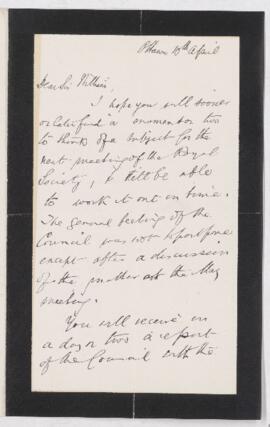 Ottawa 10th April
Dear Sir William,
I hope you will sooner
or later find a moment or two
to think of a subject for the
next meeting of the Royal
Society, & still be able
to work it out in time.
The general feeling of the
Council was not to postpone
except after a discussion
of the matter at the May
meeting.
You will receive in
a day or two a report
of the Council with the